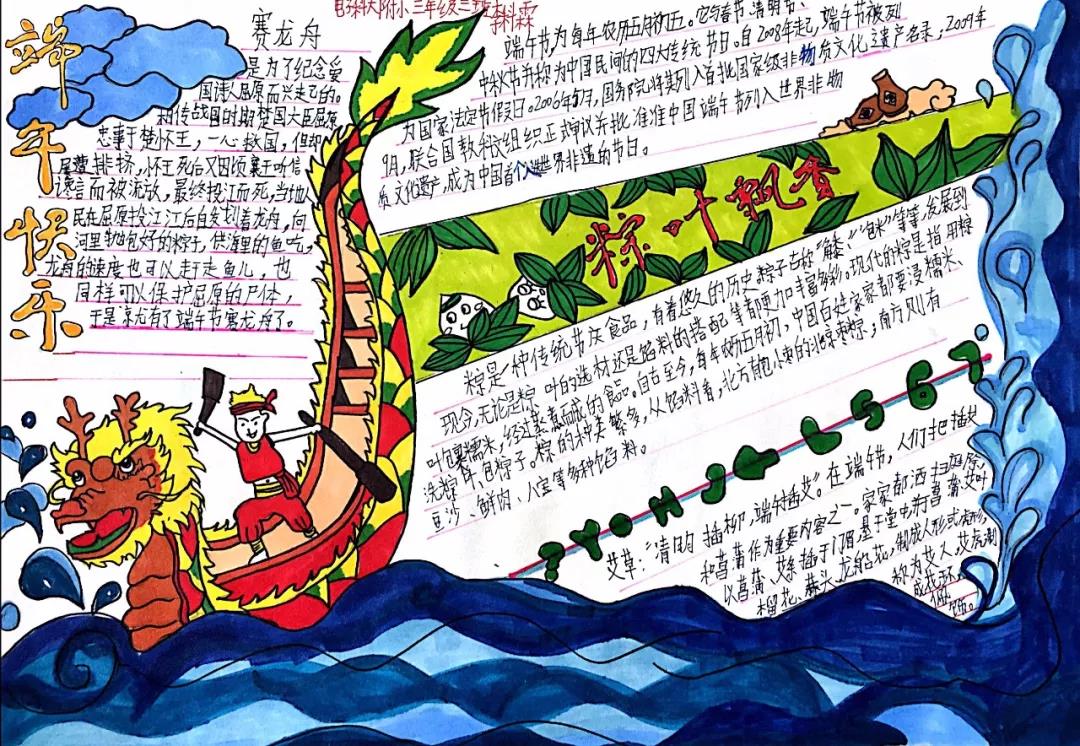 端午快乐
赛龙舟
是为了纪念爱
国诗人屈原而兴起的。
相传战国时期楚国大臣屈原
忠事于楚怀王，一心救国，但却
屡遭排挤，怀王死后又因顷襄王听信
谗言而被流放，最终投江而死，当地人
民在屈原投江后自发划着龙舟，向
河里抛包好的粽子，供河里的鱼吃，
龙舟的速度也可以赶走鱼儿，也
同样可以保护屈原的尸体，
于是就有了端午节赛龙舟了。
附小三年级三班
端午节，为每年农历五月初五。它与春节、清明节、
中秋节并称为中国民间的四大传统节日。自2008年起，端午节被列
为国家法定节假日。2006年5月，国务院将其列入首批国家级非物质文化遗产名录；2009年
9月，联合国教科文组织正式审议并批准中国端午节列入世界非物
质文化遗产，成为中国首个入选世界非遗的节日。
粽叶飘香
粽是一种传统节庆食品，有着悠久的历史，粽子古的“角黍”、“包米”等等，发展到
现今，无论是粽叶的选材还是馅料的搭配等都更加丰富多彩。现代的粽是指用粽
叶包裹糯米，经过蒸煮而成的食品。自古至今，每年农历五月初，中国百姓家家都要浸糯米、
洗粽叶、包粽子。粽的种类繁多，从馅料看，北方有包小枣的北京枣粽；南方则有
豆沙、鲜肉、八宝等多种馅料。
艾草：“清明插柳，端午插艾”。在端午节，人们把插艾
和菖蒲作为重要内容之一。家家都洒扫庭除，
以菖蒲、艾条插于门眉，悬于堂中，并用菖蒲、艾叶、
榴花、蒜头、龙船花，制成人形或虎形，
称为艾人、艾虎；制
成花环、
佩饰。